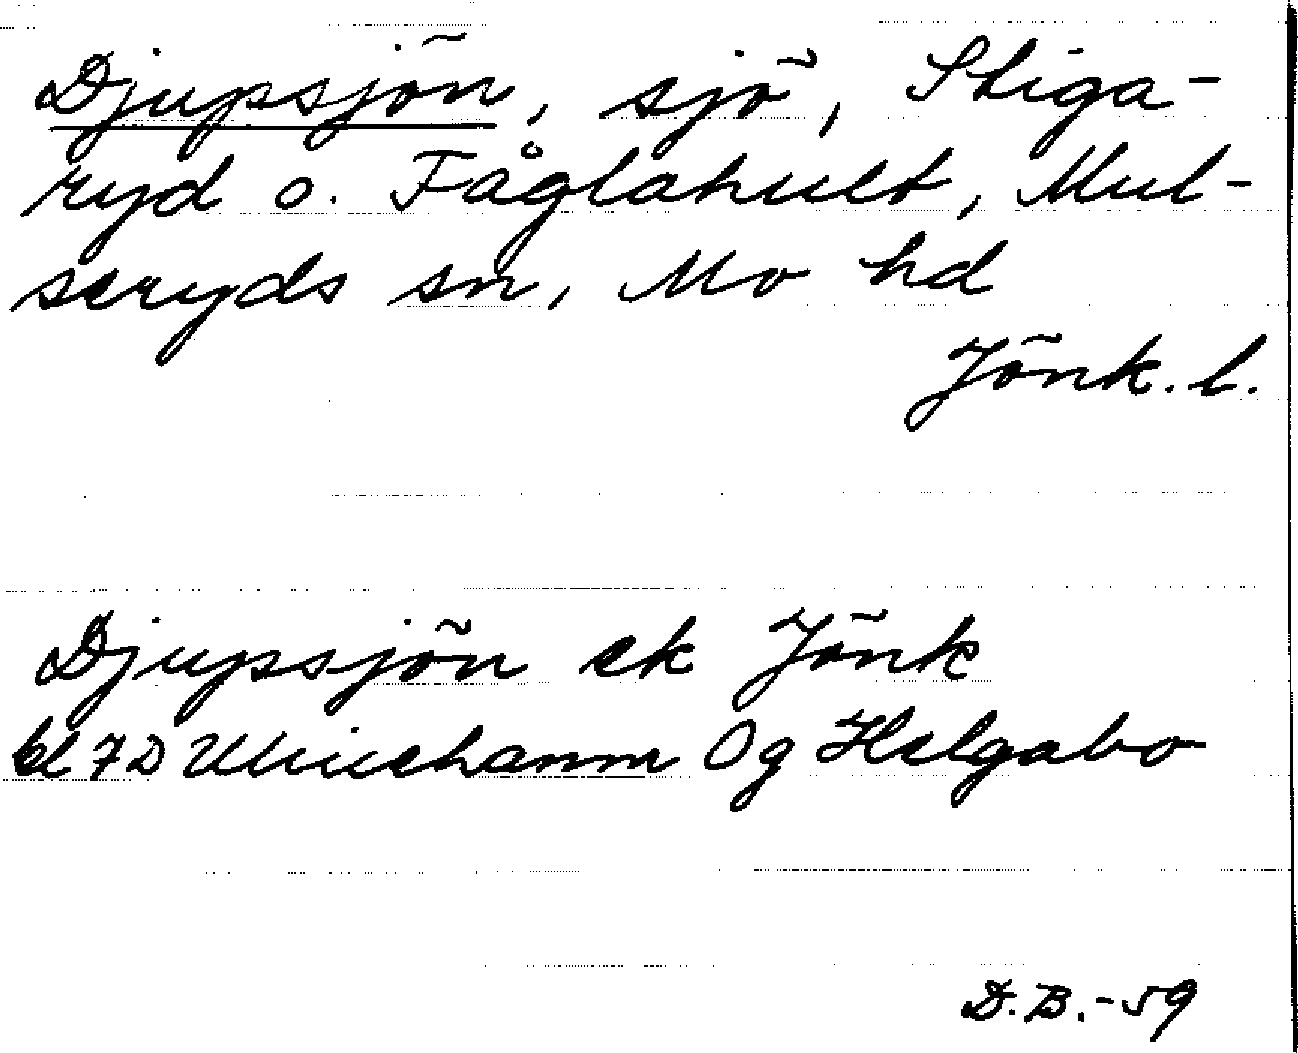 Djupsjön, sjö, Stiga-
ryd o. Fåglahult, Mul-
seryds sn, Mo hd
Jönk. l.
Djupsjön ek Jönk
bl 7D Ulricehamn Og Helgabo
D.B.-59